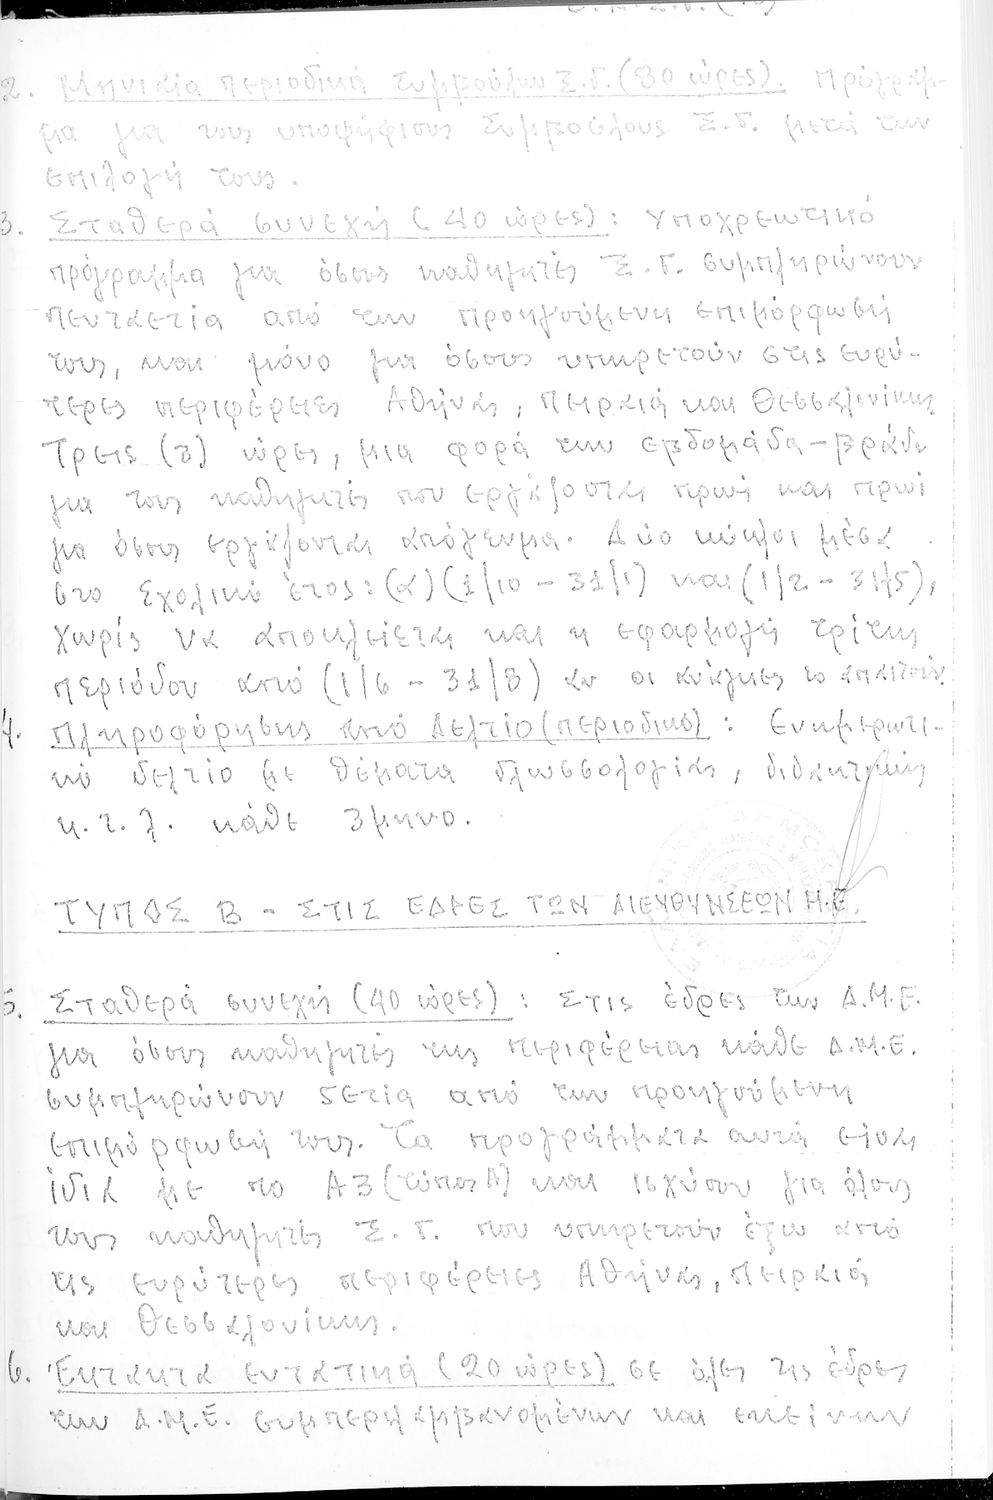 2. Μηνιαία περιοδικά Συμβούλων Ξ.Γ. (80 ώρες). Πρόγραμ-
μα για τους υποψήφιους Συμβούλους Ξ.Γ. μετά την
επιλογή τους.
3. Σταθερά συνεχή (40 ώρες): Υποχρεωτικό
πρόγραμμα για όσους καθηγητές Ξ.Γ. συμπληρώνουν
πενταετία από την προηγούμενη επιμόρφωσή
τους, και μόνο για όσους υπηρετούν στις ευρύ-
τερες περιφέρειες Αθήνας, Πειραιά και Θεσσαλονίκης
Τρεις (3) ώρες, μια φορά την εβδομάδα - βράδυ
για τους καθηγητές που εργάζονται πρωί και πρωί
για όσους εργάζονται απόγευμα. Δύο κύκλοι μέσα
στο Σχολικό έτος: (α) (1/10 - 31/1) και (1/2 - 31/5),
χωρίς να αποκλείεται και η εφαρμογή τρίτης
περιόδου από (1/6 - 31/8) αν οι ανάγκες το απαιτούν.
4. Πληροφόρησης από Δελτίο (περιοδικό): Ενημερωτι-
κό δελτίο με θέματα Γλωσσολογίας, διδακτικής
κ.τ.λ. κάθε 3μηνο.
ΤΥΠΟΣ Β - ΣΤΙΣ ΕΔΡΕΣ ΤΩΝ ΔΙΕΥΘΥΝΣΕΩΝ Μ.Ε.
5. Σταθερά συνεχή (40 ώρες): Στις έδρες των Δ.Μ.Ε.
για όσους καθηγητές της περιφέρειας κάθε Δ.Μ.Ε.
συμπληρώνουν 5ετία από την προηγούμενη
επιμόρφωσή τους. Τα προγράμματα αυτά είναι
ίδια με το Α3 (τύπος Α) και ισχύουν για όλους
τους καθηγητές Ξ.Γ. που υπηρετούν έξω από
τις ευρύτερες περιφέρειες Αθήνας, Πειραιά
και Θεσσαλονίκης.
6. Έκτακτα εντατικά (20 ώρες) σε όλες τις έδρες
των Δ.Μ.Ε. συμπεριλαμβανομένων και εκείνων